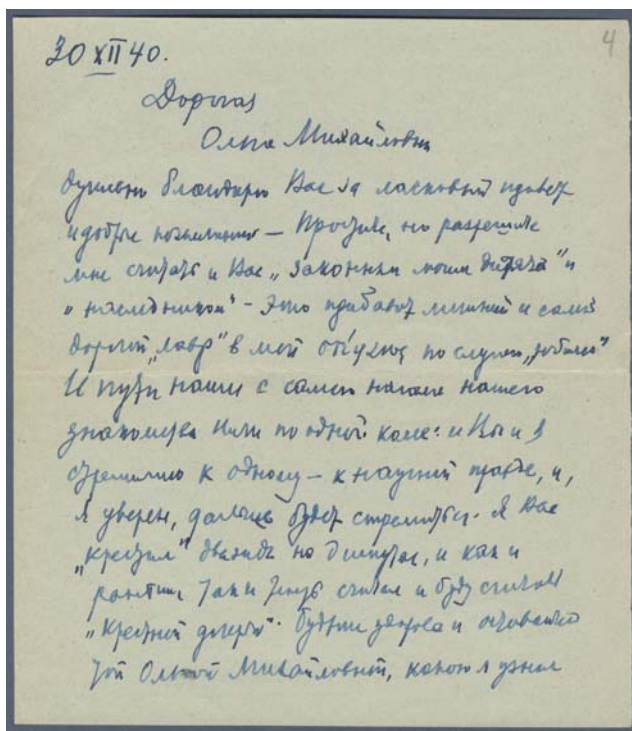 4
30 XII 40.
Дорогая
Ольга Михайловна
душевно благодарю Вас за ласковый привет
и добрые пожелания — Простите, но разрешите
мне считать и Вас „законным моим дитятей" и
„наследником" - Это прибавит лишний и самый
дорогой „лавр" в мой по случаю „юбилея"
И пути наши с самого начала нашего
знакомства шли по одной колее: и Вы и я
стремились к одному — к научной правде, и,
я уверен, дальше будем стремиться. Я Вас
„крестил" дважды на диспутах, и как и
раньше так и теперь считал и буду считать
„крестной дочерью". Будьте здоровы и
той Ольгой Михайловной, какою я узнал